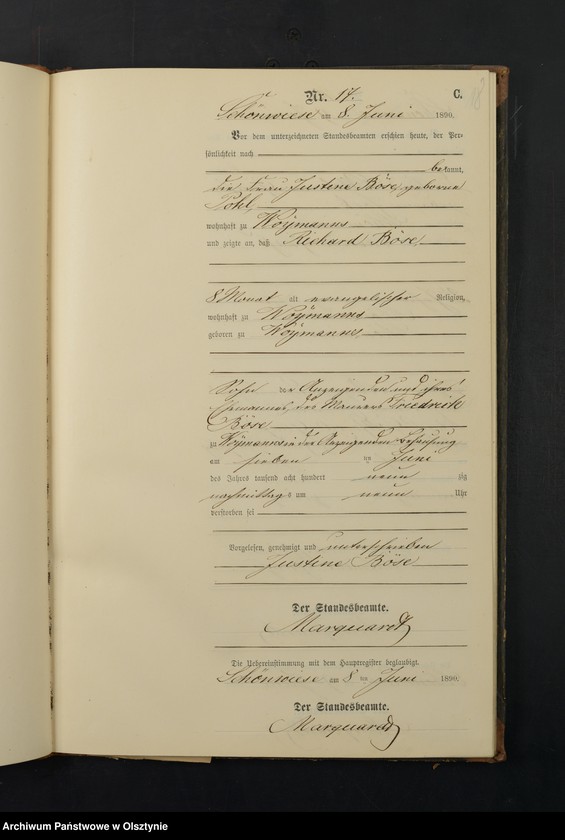 Nr. 17. C. 18
Schönwiese am 8. Juni 1890.
Vor dem unterzeichneten Standesbeamten erschien heute, der Per-
sönlichkeit nach
bekannt,
die Frau Justine Böse, geborne
Pohl,
wohnhaft zu Woymanns
und zeigte an, daß Richard Böse
8 Monat alt evangelischer Religion,
wohnhaft zu Woymanns
geboren zu Woymanns,
Sohn der Anzeigenden und ihres
Ehemannes, des Maurers Friedrich
Böse
zu Woymanns in der Anzeigenden Behausung
am sieben ten Juni
des Jahres tausend acht hundert neun zig
nachmittags um neun Uhr
verstorben sei
Vorgelesen, genehmigt und unterschrieben
Justine Böse
Der Standesbeamte.
Marquardt
Die Uebereinstimmung mit dem Hauptregister beglaubigt.
Schönwiese am 8 ten Juni 1890.
Der Standesbeamte.
Marquardt
Archiwum Państwowe w Olsztynie